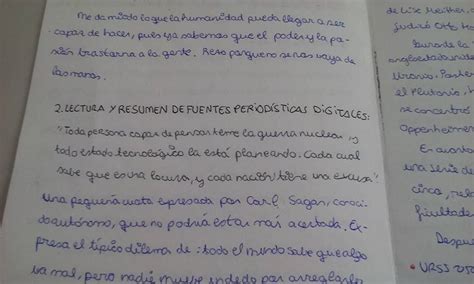 Me da miedo lo que la humanidad pueda llegar a ser
capaz de hacer, pues ya sabemos que el poder y la pa-
sión trastorna a la gente. Pero porque no se nos vaya de
las manos.
2. LECTURA Y RESUMEN DE FUENTES PERIODÍSTICAS DIGITALES:
"Toda persona capaz de pensar teme la guerra nuclear, y
todo estado tecnológico la está planeando. Cada cual
sabe que es una locura, y cada nación tiene una excusa"
Una pequeña cita expresada por Carl Sagan, conoci-
do autónomo, que no podría estar más acertada. Ex-
presa el típico dilema de: todo el mundo sabe que algo
va mal, pero nadie mueve un dedo por arreglarlo
de Lise Meitner.
judío Otto H
Durante la
anglosestadounide
Uranio. Parte
el Plutonio,
se concentró
Oppenheimer
En cuanto
una serie de
Despué
• URSS